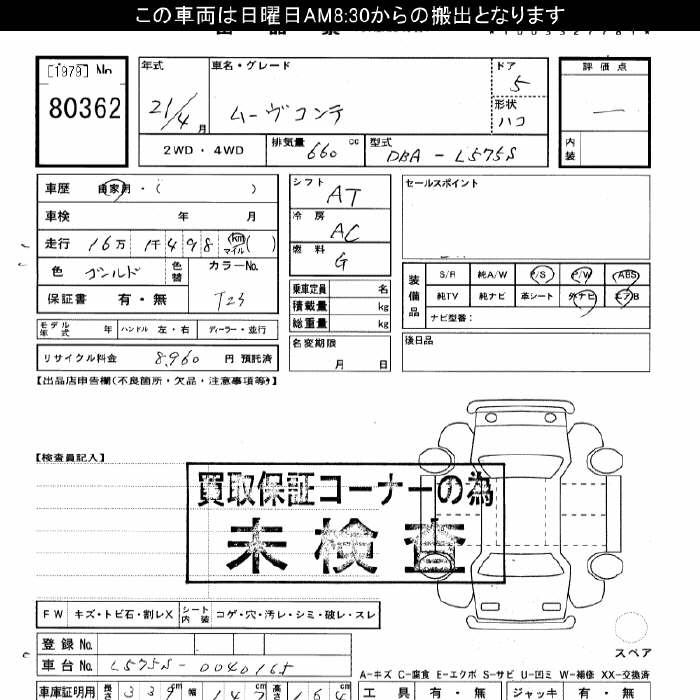 この車両は日曜日AM8:30からの搬出となります
[1979] No
80362
年式 車名・グレード ドア
21/4 月 ムーヴコンテ 5
形状 ハコ
2WD・4WD 排気量 660 cc 型式 DBA-L575S
評価点
―
内装
車歴 自家用・( )
車検 年 月
走行 16万 1千498 km マイル ( )
色 ゴールド 色替 カラーNo.
保証書 有・無 T23
モデル年式 年 ハンドル 左・右 ディーラー・並行
リサイクル料金 8,960 円 預託済
シフト AT
冷房 AC
燃料 G
乗車定員 名
積載量 kg
総重量 kg
名変期限
月 日
セールスポイント
装備品 S/R 純A/W P/S P/W ABS
純TV 純ナビ 革シート 外ナビ エアB
ナビ型番:
後日品
【出品店申告欄(不良箇所・欠品・注意事項等)】
【検査員記入】
買取保証コーナーの為
未検査
FW キズ・トビ石・割レX シート内装 コゲ・穴・汚レ・シミ・破レ・スレ
スペア
登録No.
車台No. L575S-0040165
A-キズ C-腐食 E-エクボ S-サビ U-凹ミ W-補修 XX-交換済
車庫証明用 長さ 339 cm 幅 147 高さ 164 cm
工具 有・無 ジャッキ 有・無